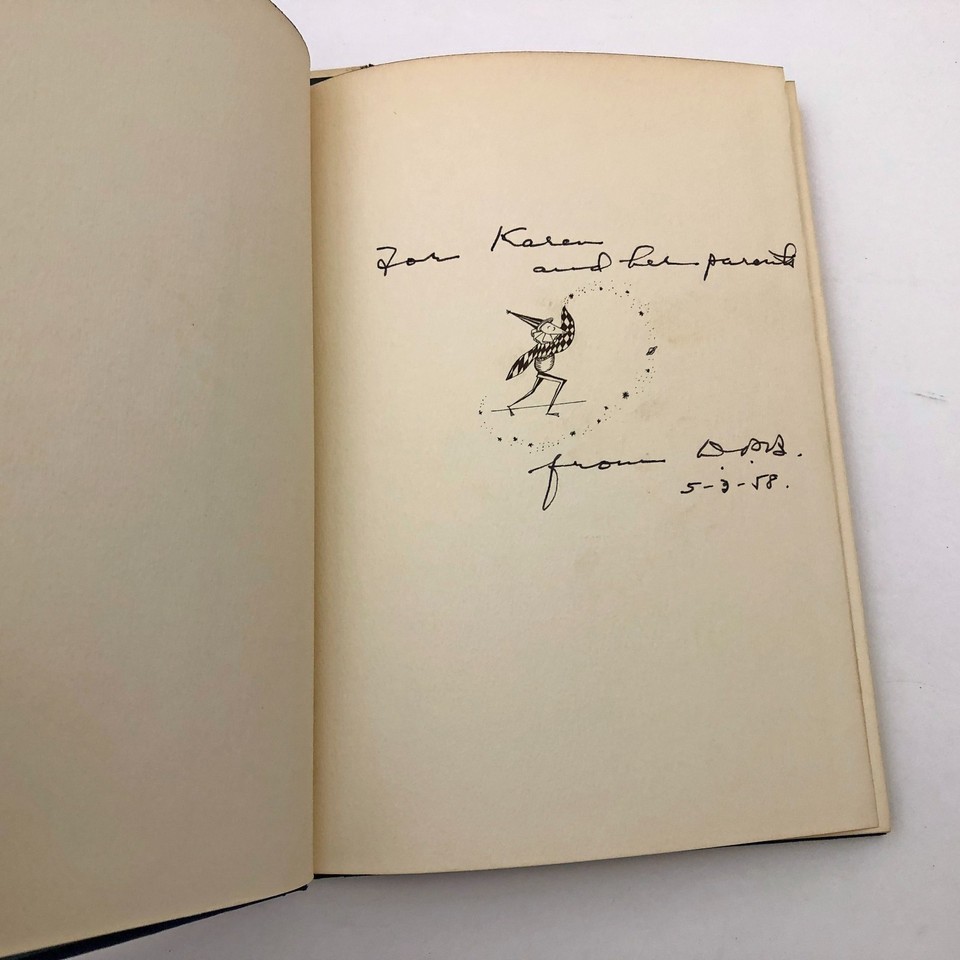 For Karen
and her parents
from D.P.B.
5-3-58.